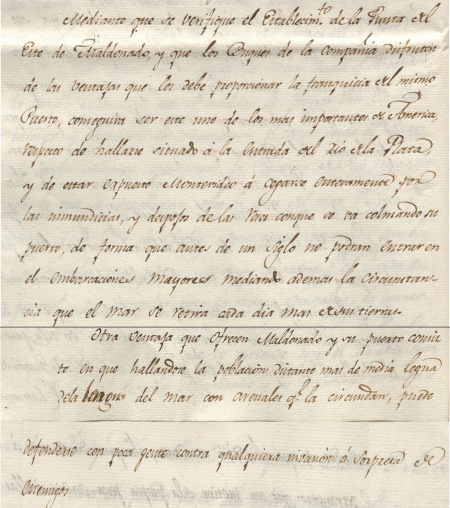 Mediante que se verifique el Establecim.to de la Punta del
Este de Maldonado, y que los Buques de la Compañia disfruten
de las ventajas que les debe proporcionar la franquicia del mismo
Puerto, conseguira ser este uno de los mas importantes de America,
respecto de hallarse situado á la entrada del Rio de la Plata
y de estar expuesto Montevideo á cegarse enteramente por
las inmundicias, y despojos de las Reses conque se va colmando su
puerto, de forma que antes de un siglo no podran entrar en
el embarcaciones mayores mediando ademas la circunstan-
cia que el mar se retira cada dia mas de su tierra.
Otra ventaja que ofrecen Maldonado y su puerto consis
te en que hallandose la poblacion distante mas de media legua
de la del mar con arenales q.e la circundan, puede
defenderse con poca gente contra qualquiera invasion ó sorpresa de
enemigos